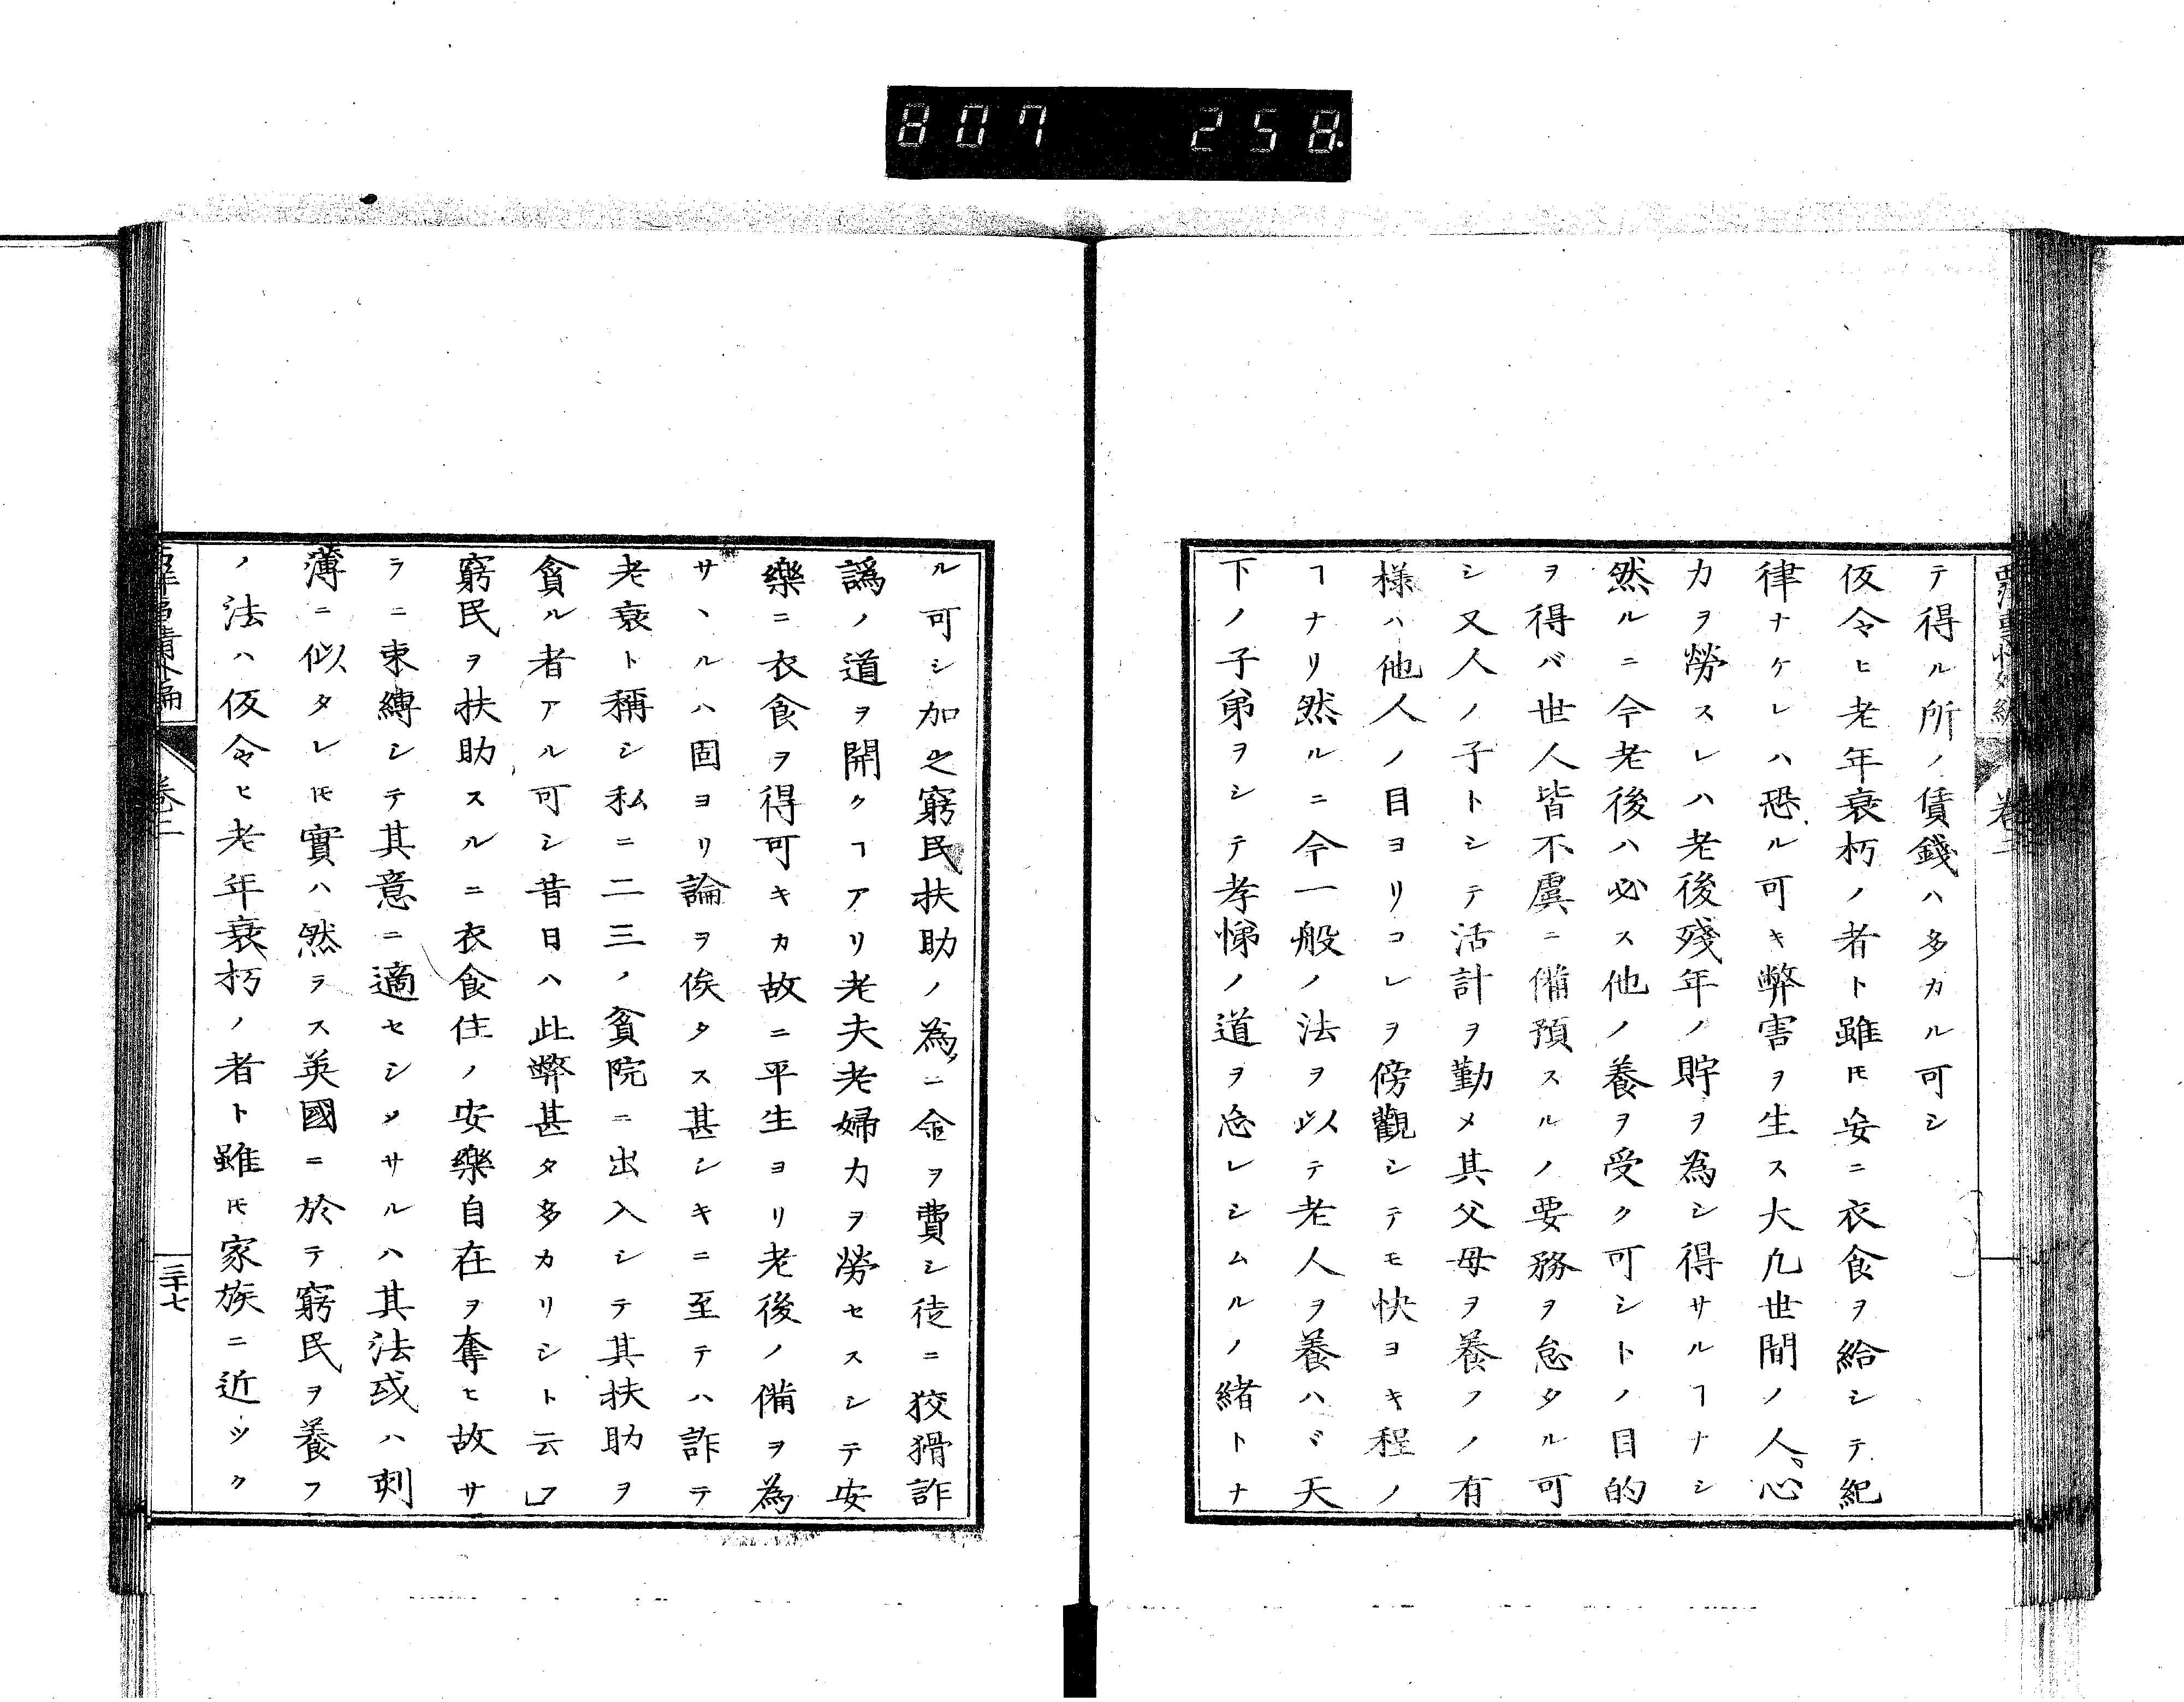 807 258
テ得ル所ノ賃錢ハ多カル可シ
仮令ヒ老年衰朽ノ者ト雖𪜈妄ニ衣食ヲ給シテ紀
律ナケレハ恐ル可キ弊害ヲ生ス大凡世間ノ人心
力ヲ勞スレハ老後殘年ノ貯ヲ為シ得サルヿナシ
然ルニ今老後ハ必ス他ノ養ヲ受ク可シトノ目的
ヲ得バ世人皆不虞ニ備預スルノ要務ヲ怠タル可
シ又人ノ子トシテ活計ヲ勤メ其父母ヲ養フノ有
様ハ他人ノ目ヨリコレヲ傍觀シテモ快ヨキ程ノ
ヿナリ然ルニ今一般ノ法ヲ以テ老人ヲ養ハヾ天
下ノ子弟ヲシテ孝悌ノ道ヲ忘レシムルノ緒トナ
ル可シ加之窮民扶助ノ為ニ金ヲ費シ徒ニ狡猾詐
譌ノ道ヲ開クヿアリ老夫老婦力ヲ勞セスシテ安
樂ニ衣食ヲ得可キカ故ニ平生ヨリ老後ノ備ヲ為
サヽルハ固ヨリ論ヲ俟タス甚シキニ至テハ詐テ
老衰ト稱シ私ニ二三ノ貧院ニ出入シテ其扶助ヲ
貪ル者アル可シ昔日ハ此弊甚タ多カリシト云フ」
窮民ヲ扶助スルニ衣食住ノ安樂自在ヲ奪ヒ故サ
ラニ束縛シテ其意ニ適セシメサルハ其法或ハ刺
薄ニ似タレ𪜈實ハ然ラス英國ニ於テ窮民ヲ養フ
ノ法ハ仮令ヒ老年衰朽ノ者ト雖𪜈家族ニ近ツク
卷二
三十七